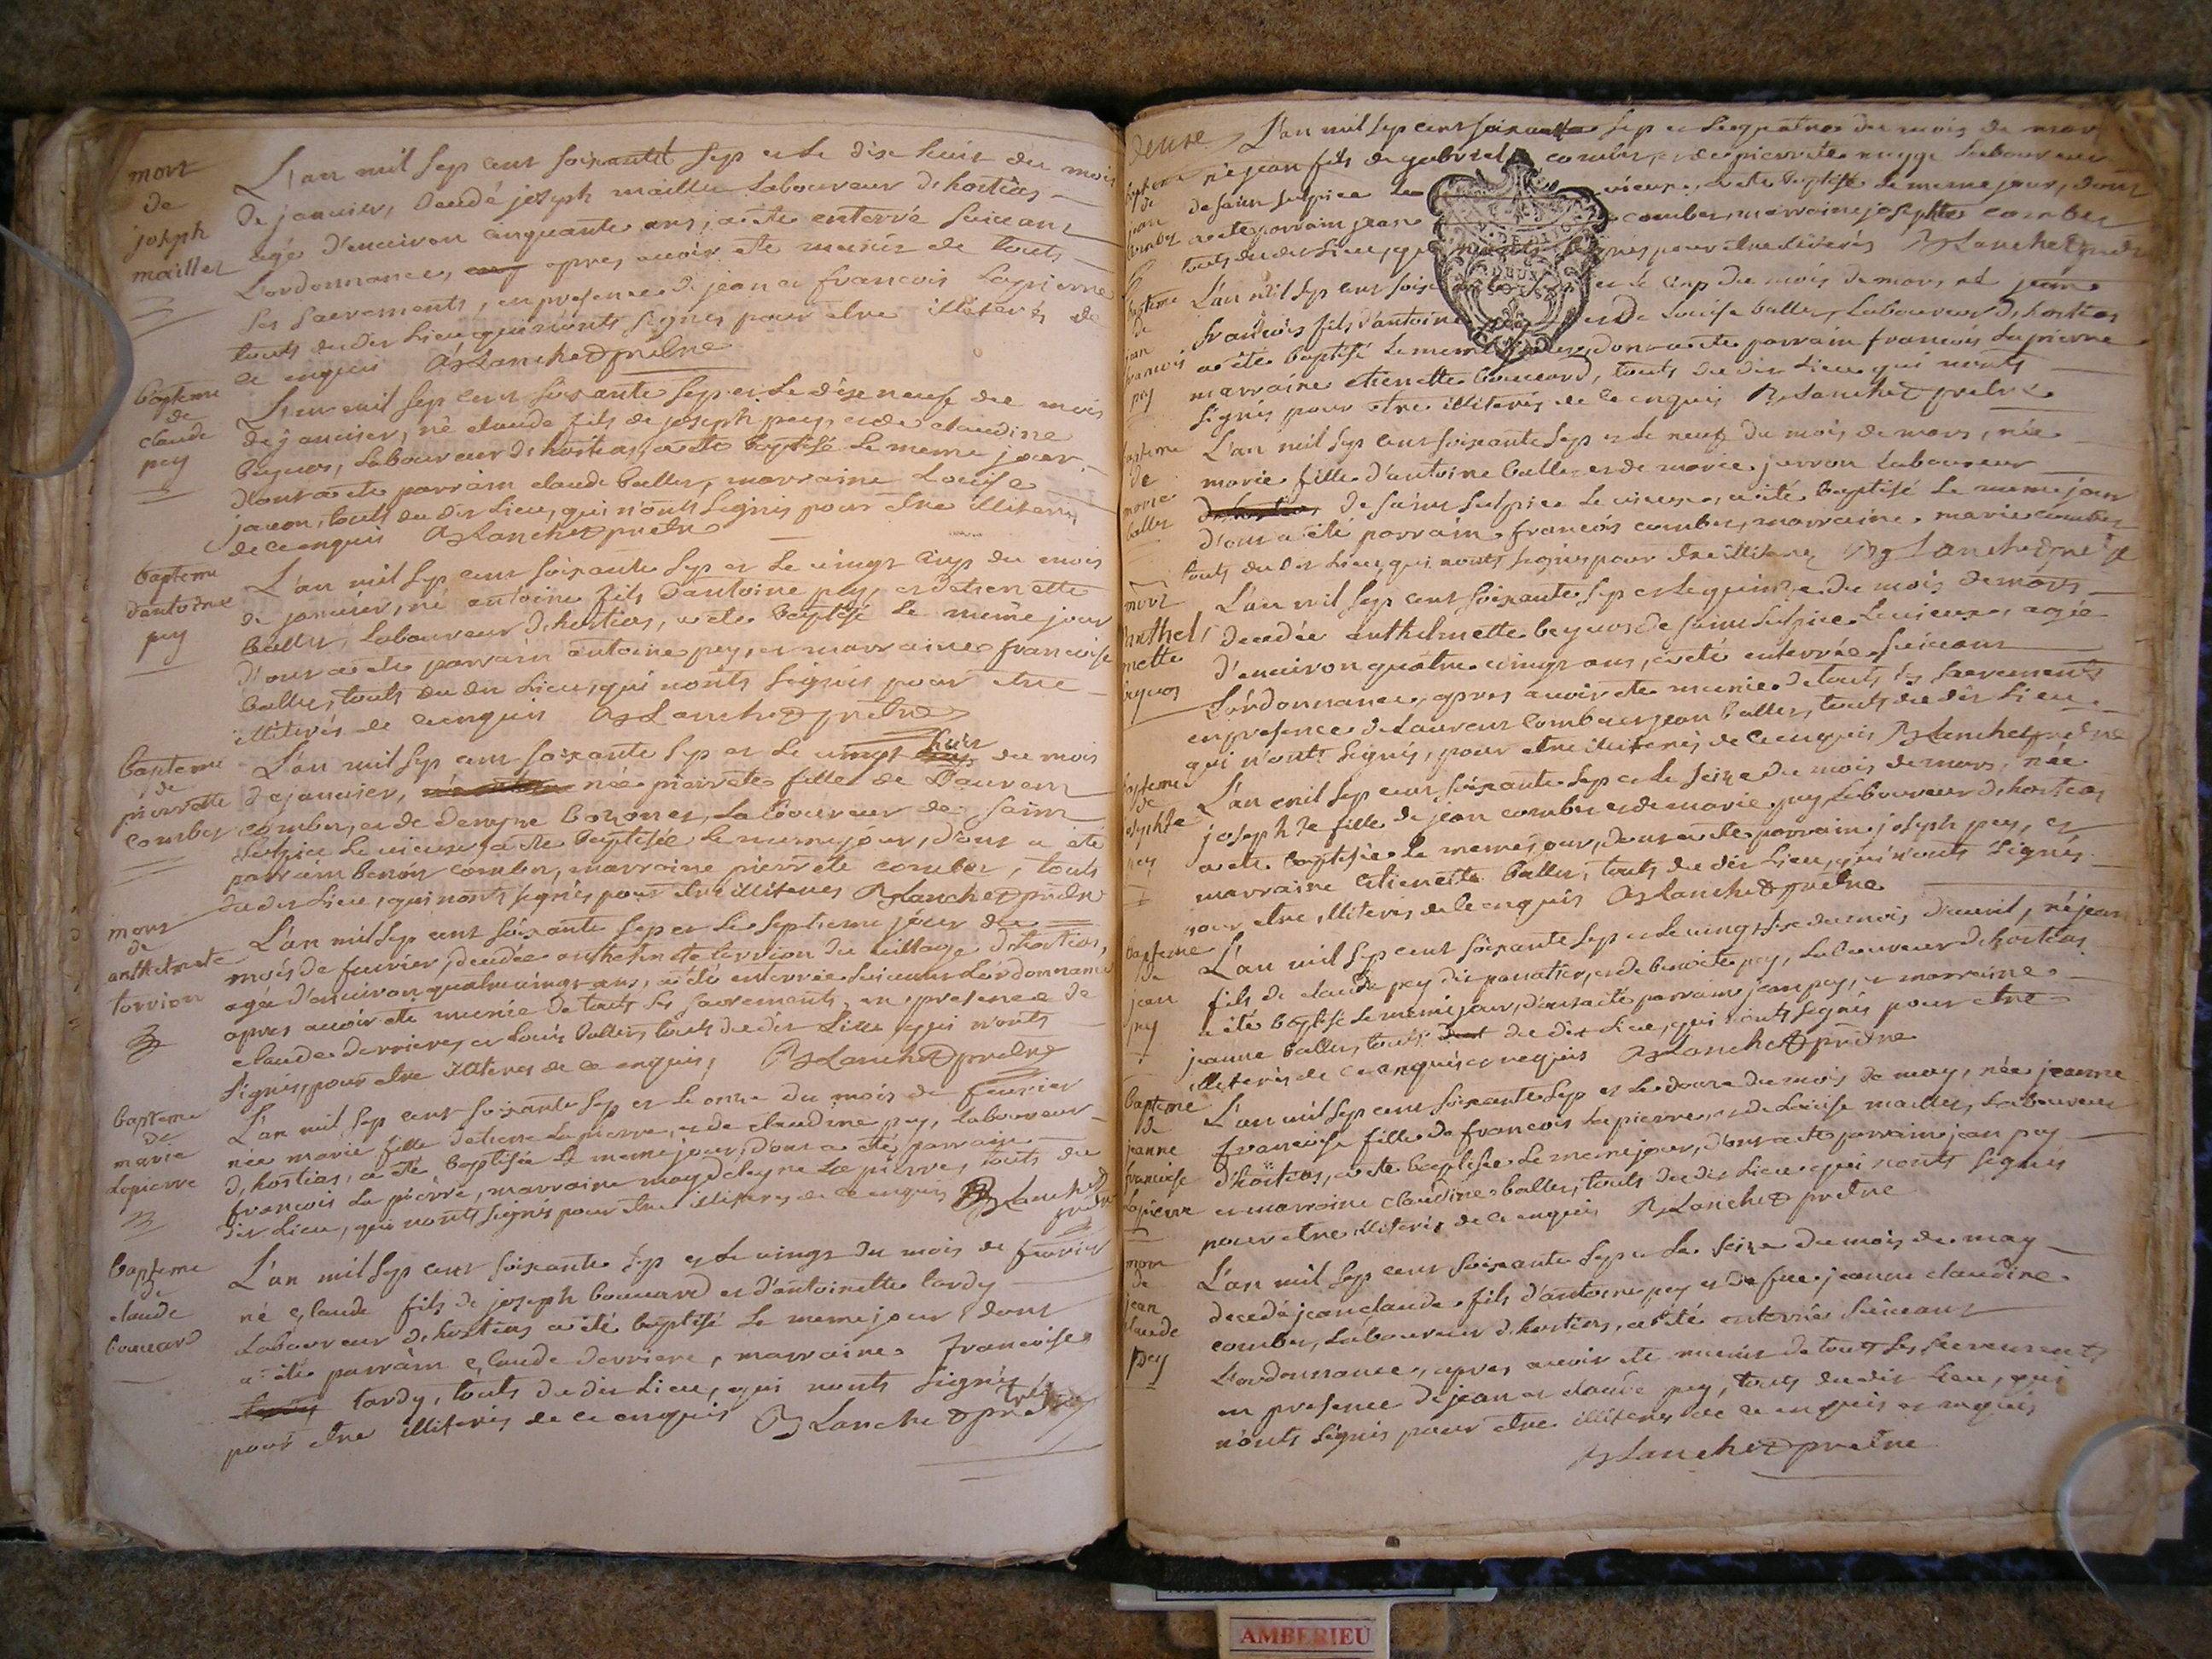 mort
de
joseph
maillet
L'an mil sep cent soixantet sep et le dixe huit du mois
de janvier, decedé joseph maillet laboureur d'hostias
agé d'environ cinquante ans, a ete enterré suivant
L'ordonnance, apres avoir ete munis de touts
ses sacrements, en presence de jean et francois lapierre
touts du dit lieu qui n'onts signés pour etre illiterés de
ce enquis Blanchet prêtre
bapteme
de
claude
pey
L'an mil sep cent soixante sep et le dixe neuf du mois
de janvier, né claude fils de joseph pey, et de claudine
beguos, laboureur d'hostias, a ete baptisé le meme jour
dont a ete parrain claude ballet, marraine Louise
javon, touts du dit lieu, qui n'onts signés pour etre illiterés
de ce enquis Blanchet pretre
bapteme
d'antoine
pey
L'an mil sep cent soixante sep et le vingt cinp du mois
de janvier, né antoine fils d'antoine pey, et d'etienette
ballet, laboureur d'hostias, a ete baptisé le meme jour
d'ont a ete parrain antoine pey, et marraine francoise
ballet, touts du dit lieu, qui n'onts signés pour etre
illiterés de ce enquis Blanchet prêtre
bapteme
de
pierrette
combet
L'an mil sep cent soixante sep et le vingt huit du mois
de janvier, née pierrete fille de Laurent
combet, et de denyne bozonet, laboureur de saint
sulpice le vieux, a ete baptisée le meme jour, dont a ete
parrain benoit combet, marraine pierrete combet, touts
du dit lieu, qui n'onts signés pour etre illiterés Blanchet prêtre
mort
de
anthelmete
torrion
L'an mil sep cent soixante sep et le septieme jour du
mois de fevrier, decedée anthelmete torrion du village d'hostias,
agée d'environ quatre vingt ans, a été enterrée suivant L'ordonnance
apres avoir ete munie de touts ses sacrements, en presence de
claude derriere, et Louis ballet, touts du dit lieu qui n'onts
signés, pour etre illiteres de ce enquis, Blanchet prêtre
bapteme
de
marie
Lapierre
L'an mil sep cent soixante sep et le onze du mois de fevrier
née marie fille d'etienne Lapierre, et de claudine pey, laboureur
d'hostias, a été baptisée le meme jour, dont a été parrain
francois Lapierre, marraine magdeleyne Lapierre, touts du
dit lieu, qui n'onts signés pour etre illiteres de ce enquis Blanchet
pretre
bapteme
de
claude
bouvard
L'an mil sep cent soixante sep et le vingt du mois de fevrier
né claude fils de joseph bouvard et d'antoinette tardy
Laboureur d'hostias a été baptisé le meme jour, dont
a été parrain claude derriere, marraine francoise
tardy, touts du dit lieu, qui n'onts signés
pour etre illiterés de ce enquis Blanchet prêtre
deuxe
bapteme
de
jean
combet
L'an mil sep cent soixante sep et le quatre du mois de mars
né jean fils de gabriel combet, et de pierrete Laboureur
de saint sulpice le vieux, a ete baptisé le meme jour, dont
a ete parrain jean combet, marraine josephte combet
touts du dit lieu, qui n'onts signés pour etre illiterés Blanchet prêtre
bapteme
de
jean
francois
pey
L'an mil sep cent soixante sep et le cinp du mois de mars, né jean
francois fils d'antoine pey et de Louise ballet, Laboureur d'hostias
a été baptisé le meme jour, dont a ete parrain francois Lapierre
marraine etienette bouvard, touts du dit lieu qui n'onts
signés pour etre illiterés de ce enquis Blanchet pretre
bapteme
de
marie
ballet
L'an mil sep cent soixante sep et le neuf du mois de mars, née
marie fille d'antoine ballet et de marie jurron Laboureur
de saint sulpice le vieux, a été baptisé le meme jour
d'ont a été parrain francois combet, marraine marie combet
touts du dit lieu, qui n'onts signés pour etre illiteres Blanchet pretre
mort
Anthel
mette
beguos
L'an mil sep cent soixante sep et le quinze du mois de mars
decedée anthelmette beguos de saint sulpice le vieux, agée
d'environ quatre vingt ans, a été enterrée suivant
L'ordonnance, apres avoir ete munie de touts ses sacrements
en presence de Laurent combet et jean ballet, touts du dit lieu
qui n'onts signés, pour etre illiterés de ce enquis Blanchet pretre
bapteme
de
josephte
pey
L'an mil sep cent soixante sep et le seize du mois de mars, née
josephte fille de jean combet et de marie pey, Laboureur d'hostias
a ete baptisée le meme jour, dont a ete parrain joseph pey, et
marraine etienette ballet, touts du dit lieu, qui n'onts signés
pour etre illiterés de ce enquis Blanchet prêtre
bapteme
de
jean
pey
L'an mil sep cent soixante sep et le vingt sixe du mois d'avril, né jean
fils de claude pey dit panatier, et de benoite pey, laboureur d'hostias
a été baptisé le meme jour, dont a été parrain jean pey, et marraine
jeanne ballet, touts du dit lieu, qui n'onts signés pour etre
illiterés de ce enquis et requis Blanchet prêtre
bapteme
de
jeanne
francoise
Lapierre
L'an mil sep cent soixante sep et le douze du mois de may, née jeanne
francoise fille de francois Lapierre, et de Louise maillet, Laboureur
d'hostias, a ete baptisée le meme jour, dont a ete parrain jean pey
et marraine claudine ballet, touts du dit lieu qui n'onts signés
pour etre illiterés de ce enquis Blanchet prêtre
mort
de
jean
claude
pey
L'an mil sep cent soixante sep et le seize du mois de may
decedé jean claude fils d'antoine pey et de fue jeanne claudine
combet, Laboureur d'hostias, a été enterrés suivant
L'ordonnance, apres avoir ete munis de touts ses sacrements
en presence de jean et claude pey, touts du dit lieu, qui
n'onts signés pour etre illiteres de ce enquis et requis
Blanchet pretre
AMBERIEU